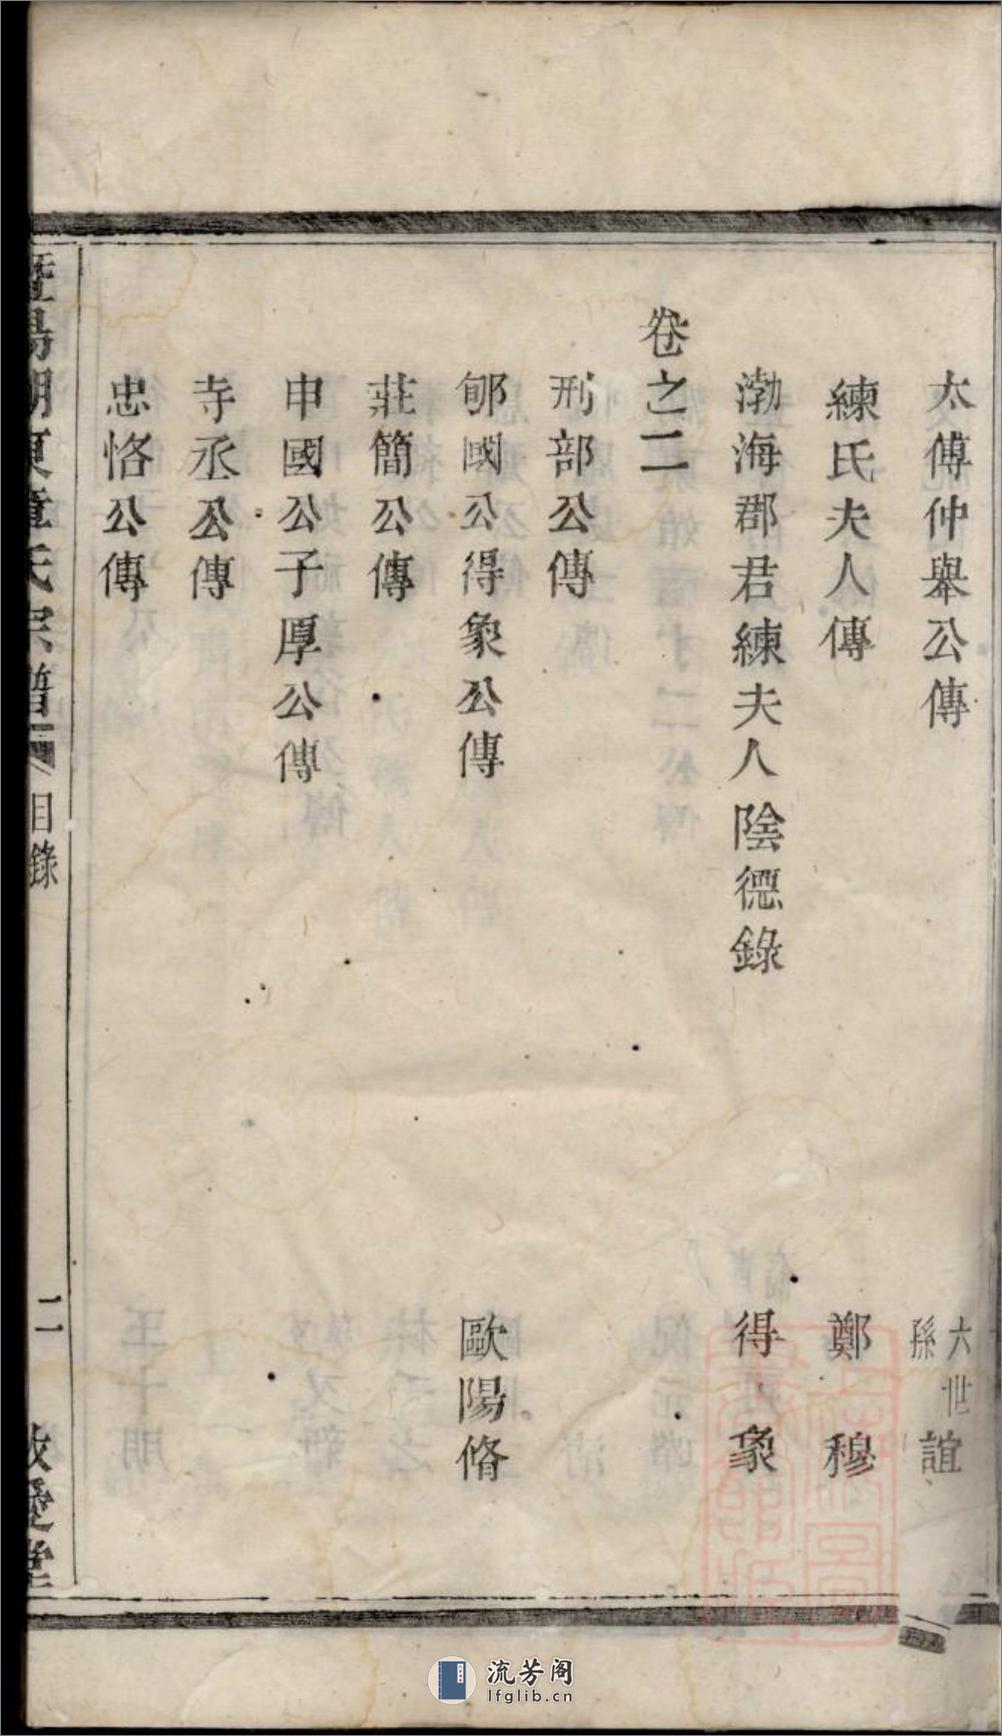 太傅仲舉公傳 六世孫 誼
練氏夫人傳 鄭穆
渤海郡君練夫人陰德錄 得象
卷之二
刑部公傳
郇國公得象公傳 歐陽脩
莊簡公傳
申國公子厚公傳
寺丞公傳
忠恪公傳
暨陽湖東章氏宗譜 目錄 二 敬愛堂
流芳阁
lfglib.cn